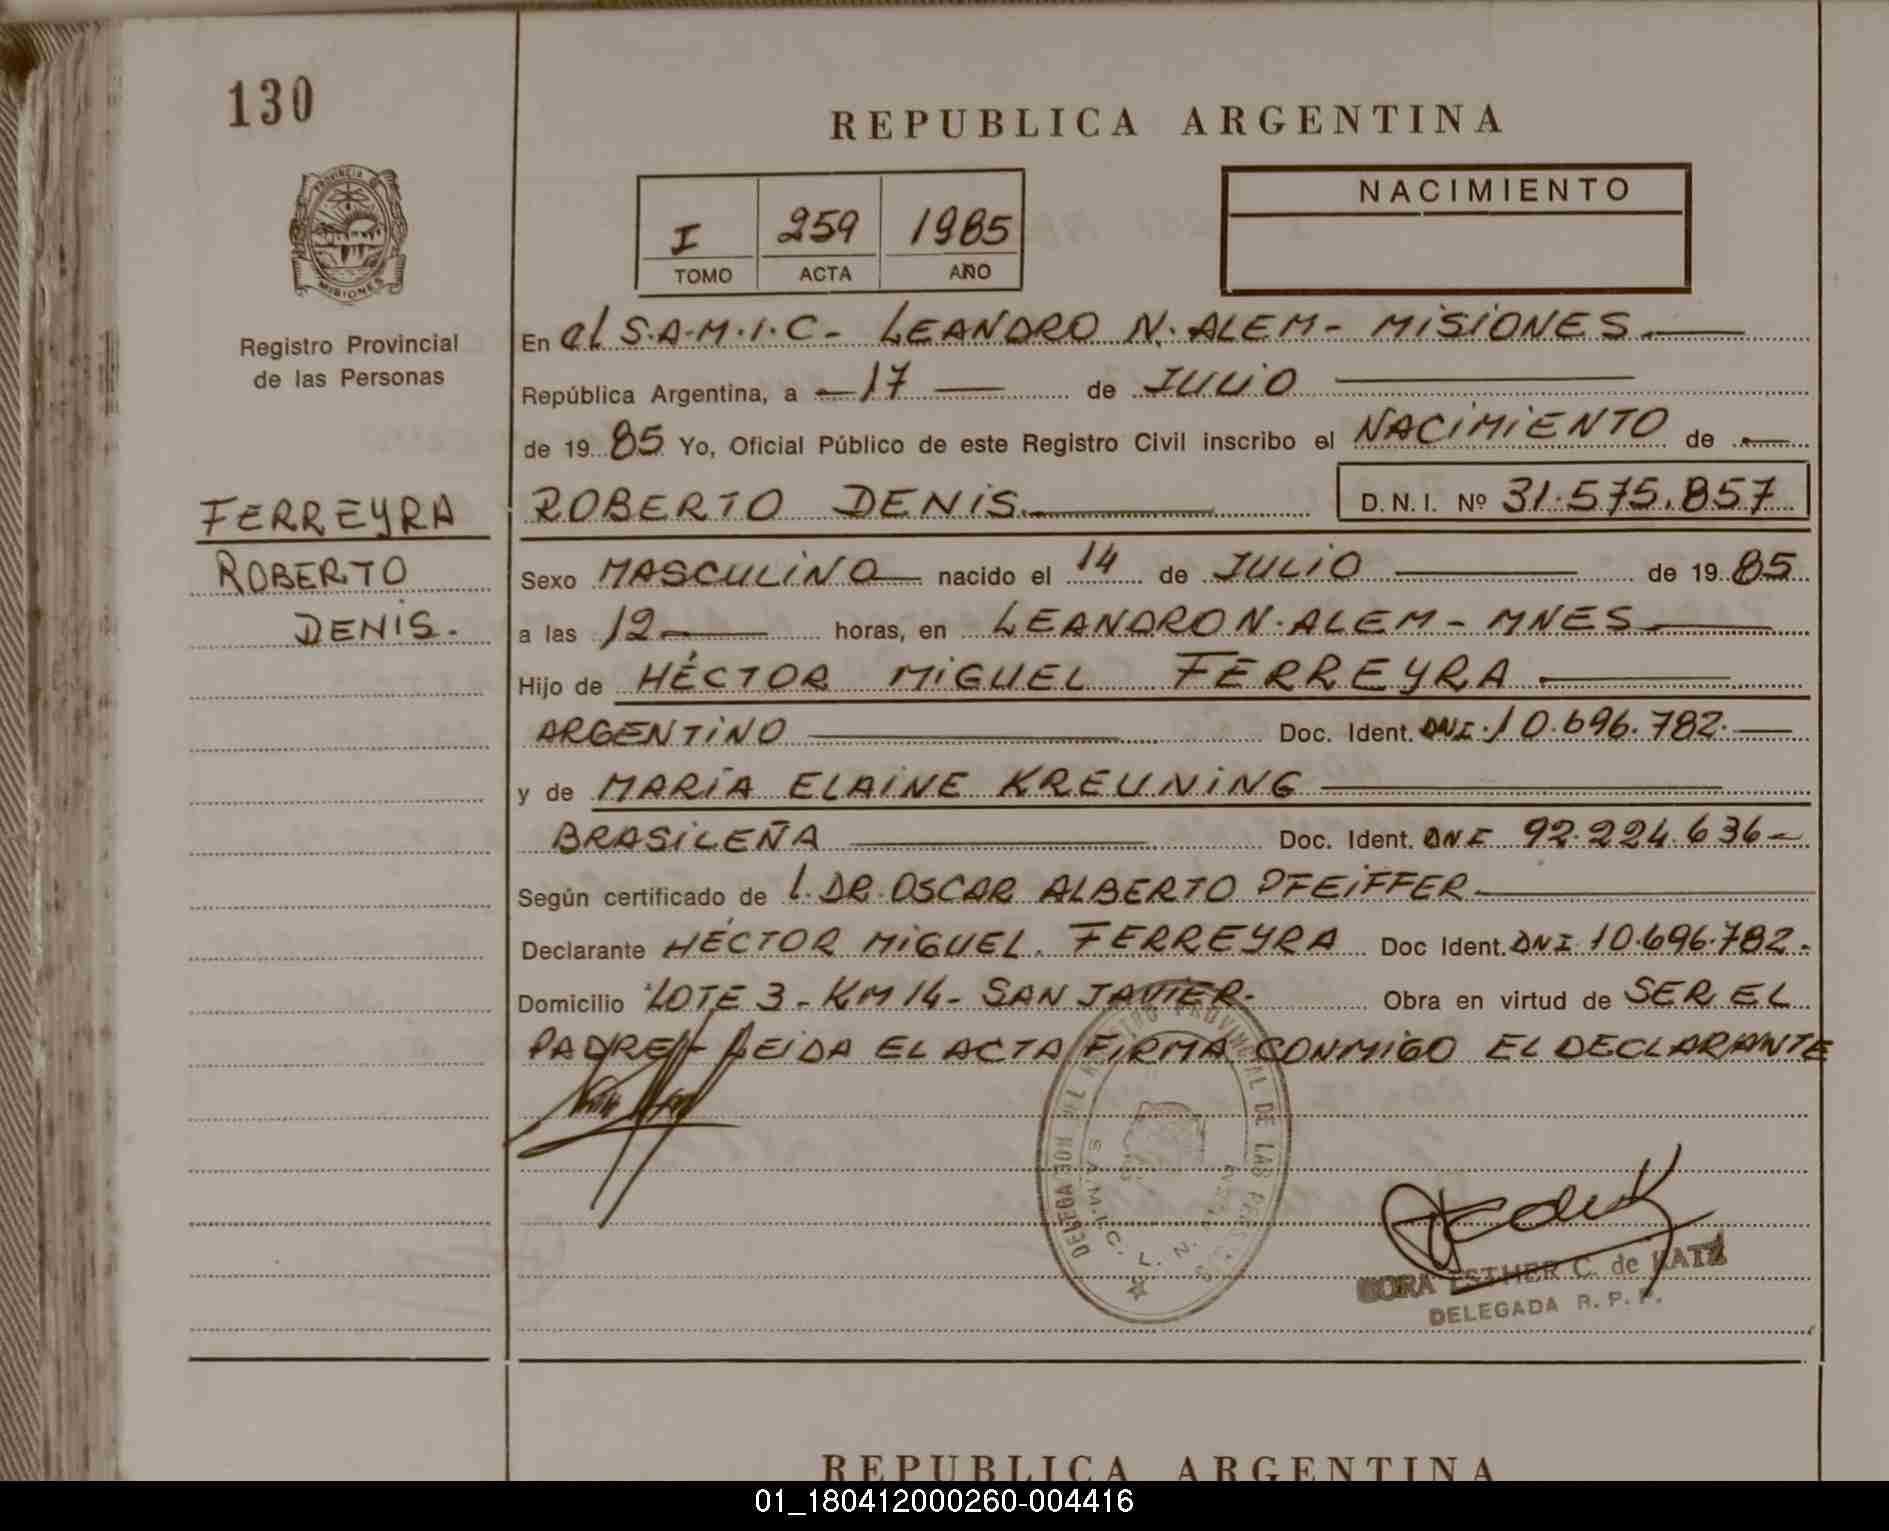 130
REPUBLICA ARGENTINA
PROVINCIA D
MISIONES
Registro Provincial
de las Personas
I 259 1985
TOMO ACTA AÑO
NACIMIENTO
En el S.A.M.I.C- LEANDRO N. ALEM- MISIONES
República Argentina, a -17- de JULIO
de 1985 Yo, Oficial Público de este Registro Civil inscribo el NACIMIENTO de
FERREYRA
ROBERTO
DENIS.
ROBERTO DENIS D.N.I. Nº 31.575.857
Sexo MASCULINO nacido el 14 de JULIO de 1985
a las 12 horas, en LEANDRO N. ALEM - MNES
Hijo de HÉCTOR MIGUEL FERREYRA
ARGENTINO Doc. Ident. DNI. 10.696.782.
y de MARÍA ELAINE KREUNING
BRASILEÑA Doc. Ident. DNI 92.224.636-
Según certificado de l. DR. OSCAR ALBERTO PFEIFFER
Declarante HÉCTOR MIGUEL. FERREYRA Doc Ident. DNI 10.696.782.
Domicilio LOTE 3 - KM 14 - SAN JAVIER- Obra en virtud de SER EL
PADRE - LEIDA EL ACTA FIRMA CONMIGO EL DECLARANTE
PROVINCIAL DE LAS
S.A.M.I.C. L. N.
ESTHER C. de KATZ
DELEGADA R. P. P.
REPUBLICA ARGENTINA
01_180412000260-004416